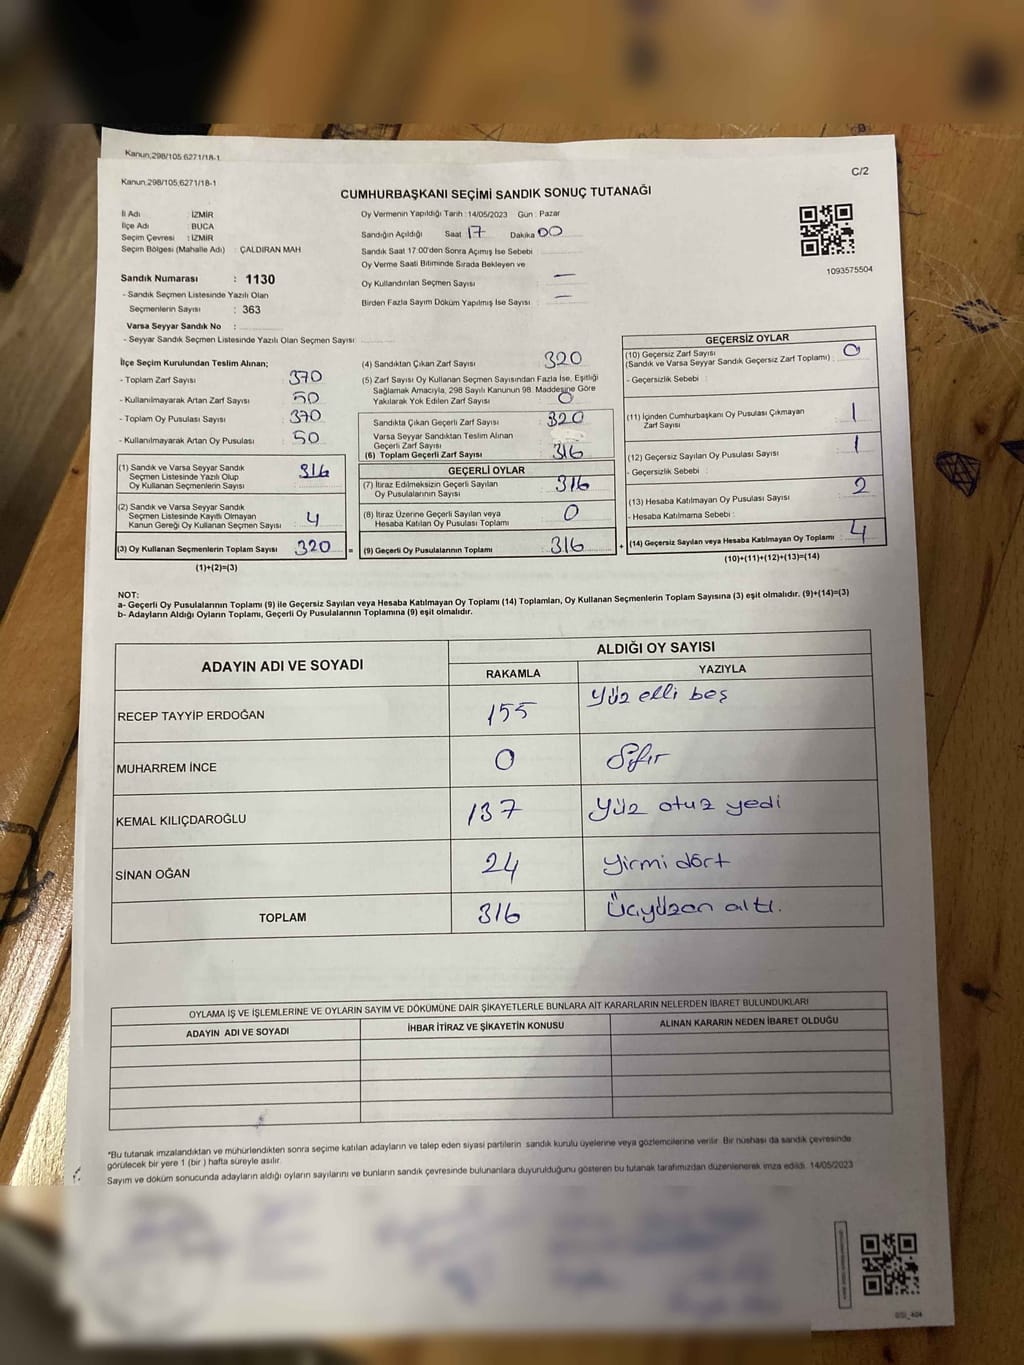 Kanun,298/105;6271/18-1
Kanun,298/105;6271/18-1
C/2
CUMHURBAŞKANI SEÇİMİ SANDIK SONUÇ TUTANAĞI
İl Adı : İZMİR
İlçe Adı : BUCA
Seçim Çevresi : İZMİR
Seçim Bölgesi (Mahalle Adı) : ÇALDIRAN MAH
Sandık Numarası : 1130
- Sandık Seçmen Listesinde Yazılı Olan
Seçmenlerin Sayısı : 363
Varsa Seyyar Sandık No :
- Seyyar Sandık Seçmen Listesinde Yazılı Olan Seçmen Sayısı :
Oy Vermenin Yapıldığı Tarih : 14/05/2023 Gün : Pazar
Sandığın Açıldığı Saat 17 Dakika 00
Sandık Saat 17:00'den Sonra Açımış İse Sebebi :
Oy Verme Saati Bitiminde Sırada Bekleyen ve
Oy Kullandırılan Seçmen Sayısı : —
Birden Fazla Sayım Döküm Yapılmış İse Sayısı : —
1093575504
İlçe Seçim Kurulundan Teslim Alınan;
- Toplam Zarf Sayısı : 370
- Kullanılmayarak Artan Zarf Sayısı : 50
- Toplam Oy Pusulası Sayısı : 370
- Kullanılmayarak Artan Oy Pusulası : 50
(1) Sandık ve Varsa Seyyar Sandık
Seçmen Listesinde Yazılı Olup
Oy Kullanan Seçmenlerin Sayısı : 316
(2) Sandık ve Varsa Seyyar Sandık
Seçmen Listesinde Kayıtlı Olmayan
Kanun Gereği Oy Kullanan Seçmen Sayısı : 4
(3) Oy Kullanan Seçmenlerin Toplam Sayısı : 320 =
(1)+(2)=(3)
(4) Sandıktan Çıkan Zarf Sayısı : 320
(5) Zarf Sayısı Oy Kullanan Seçmen Sayısından Fazla İse, Eşitliği
Sağlamak Amacıyla, 298 Sayılı Kanunun 98. Maddesine Göre
Yakılarak Yok Edilen Zarf Sayısı : 0
Sandıkta Çıkan Geçerli Zarf Sayısı : 320
Varsa Seyyar Sandıktan Teslim Alınan
Geçerli Zarf Sayısı :
(6) Toplam Geçerli Zarf Sayısı : 316
GEÇERLİ OYLAR
(7) İtiraz Edilmeksizin Geçerli Sayılan
Oy Pusulalarının Sayısı : 316
(8) İtiraz Üzerine Geçerli Sayılan veya
Hesaba Katılan Oy Pusulası Toplamı : 0
(9) Geçerli Oy Pusulalarının Toplamı : 316 +
GEÇERSİZ OYLAR
(10) Geçersiz Zarf Sayısı
(Sandık ve Varsa Seyyar Sandık Geçersiz Zarf Toplamı) : 0
- Geçersizlik Sebebi :
(11) İçinden Cumhurbaşkanı Oy Pusulası Çıkmayan
Zarf Sayısı : 1
(12) Geçersiz Sayılan Oy Pusulası Sayısı : 1
- Geçersizlik Sebebi :
(13) Hesaba Katılmayan Oy Pusulası Sayısı : 2
- Hesaba Katılmama Sebebi :
(14) Geçersiz Sayılan veya Hesaba Katılmayan Oy Toplamı : 4
(10)+(11)+(12)+(13)=(14)
NOT:
a- Geçerli Oy Pusulalarının Toplamı (9) ile Geçersiz Sayılan veya Hesaba Katılmayan Oy Toplamı (14) Toplamları, Oy Kullanan Seçmenlerin Toplam Sayısına (3) eşit olmalıdır. (9)+(14)=(3)
b- Adayların Aldığı Oyların Toplamı, Geçerli Oy Pusulalarının Toplamına (9) eşit olmalıdır.
ADAYIN ADI VE SOYADI ALDIĞI OY SAYISI
RAKAMLA YAZIYLA
RECEP TAYYİP ERDOĞAN 155 Yüz elli beş
MUHARREM İNCE 0 Sıfır
KEMAL KILIÇDAROĞLU 137 Yüz otuz yedi
SİNAN OĞAN 24 Yirmi dört
TOPLAM 316 Üçyüzon altı.
OYLAMA İŞ VE İŞLEMLERİNE VE OYLARIN SAYIM VE DÖKÜMÜNE DAİR ŞİKAYETLERLE BUNLARA AİT KARARLARIN NELERDEN İBARET BULUNDUKLARI
ADAYIN ADI VE SOYADI İHBAR İTİRAZ VE ŞİKAYETİN KONUSU ALINAN KARARIN NEDEN İBARET OLDUĞU
*Bu tutanak imzalandıktan ve mühürlendikten sonra seçime katılan adayların ve talep eden siyasi partilerin sandık kurulu üyelerine veya gözlemcilerine verilir. Bir nüshası da sandık çevresinde
görülecek bir yere 1 (bir ) hafta süreyle asılır.
Sayım ve döküm sonucunda adayların aldığı oyların sayılarını ve bunların sandık çevresinde bulunanlara duyurulduğunu gösteren bu tutanak tarafımızdan düzenlenerek imza edildi. 14/05/2023